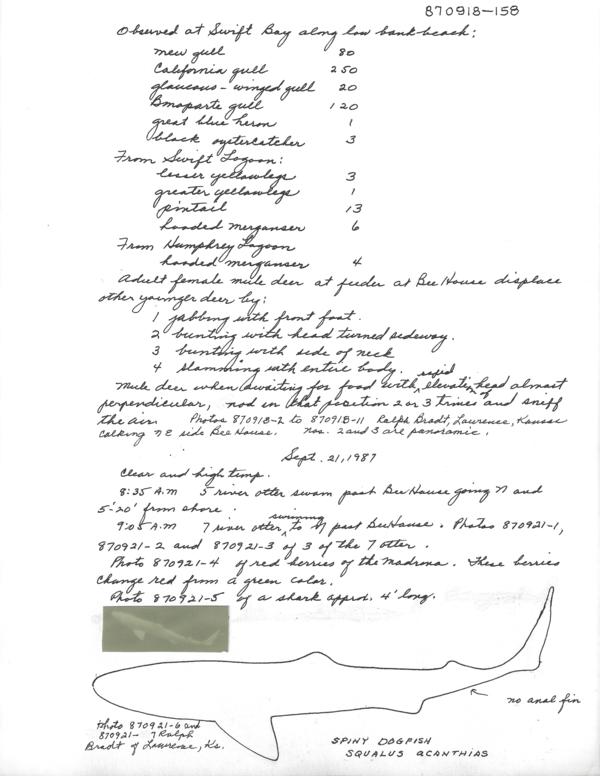 870918-158
Observed at Swift Bay along low bank beach:
mew gull 80
California gull 250
glaucous-winged gull 20
Bonaparte gull 120
great blue heron 1
black oystercatcher 3
From Swift Lagoon:
lesser yellowlegs 3
greater yellowlegs 1
pintail 13
hooded merganser 6
From Humphrey Lagoon
hooded merganser 4
Adult female mule deer at feeder at Bee House displace
other younger deer by:
1 jabbing with front foot.
2 bunting with head turned sideway.
3 bunting with side of neck
4 slamming with entire body.
Mule deer when awaiting for food with, elevate head almost
perpendicular, nod in that position 2 or 3 times and sniff
the air. Photos 870918-2 to 870918-11 Ralph Bradt, Lawrence, Kansas
calking NE side Bee House. nos. 2 and 3 are panoramic.
Sept. 21, 1987
Clear and high temp.
8:35 A.M 5 river otter swam past Bee House going N and
5'-20' from shore.
9:05 A.M 7 river otter, swimming to N past Bee House. Photos 870921-1,
870921-2 and 870921-3 of 3 of the 7 otter.
Photo 870921-4 of red berries of the Madrona. These berries
change red from a green color.
Photo 870921-5 of a shark approx. 4' long.
no anal fin
Photo 870921-6 and
870921-7 Ralph
Bradt of Lawrence, Ks.
SPINY DOGFISH
SQUALUS ACANTHIAS